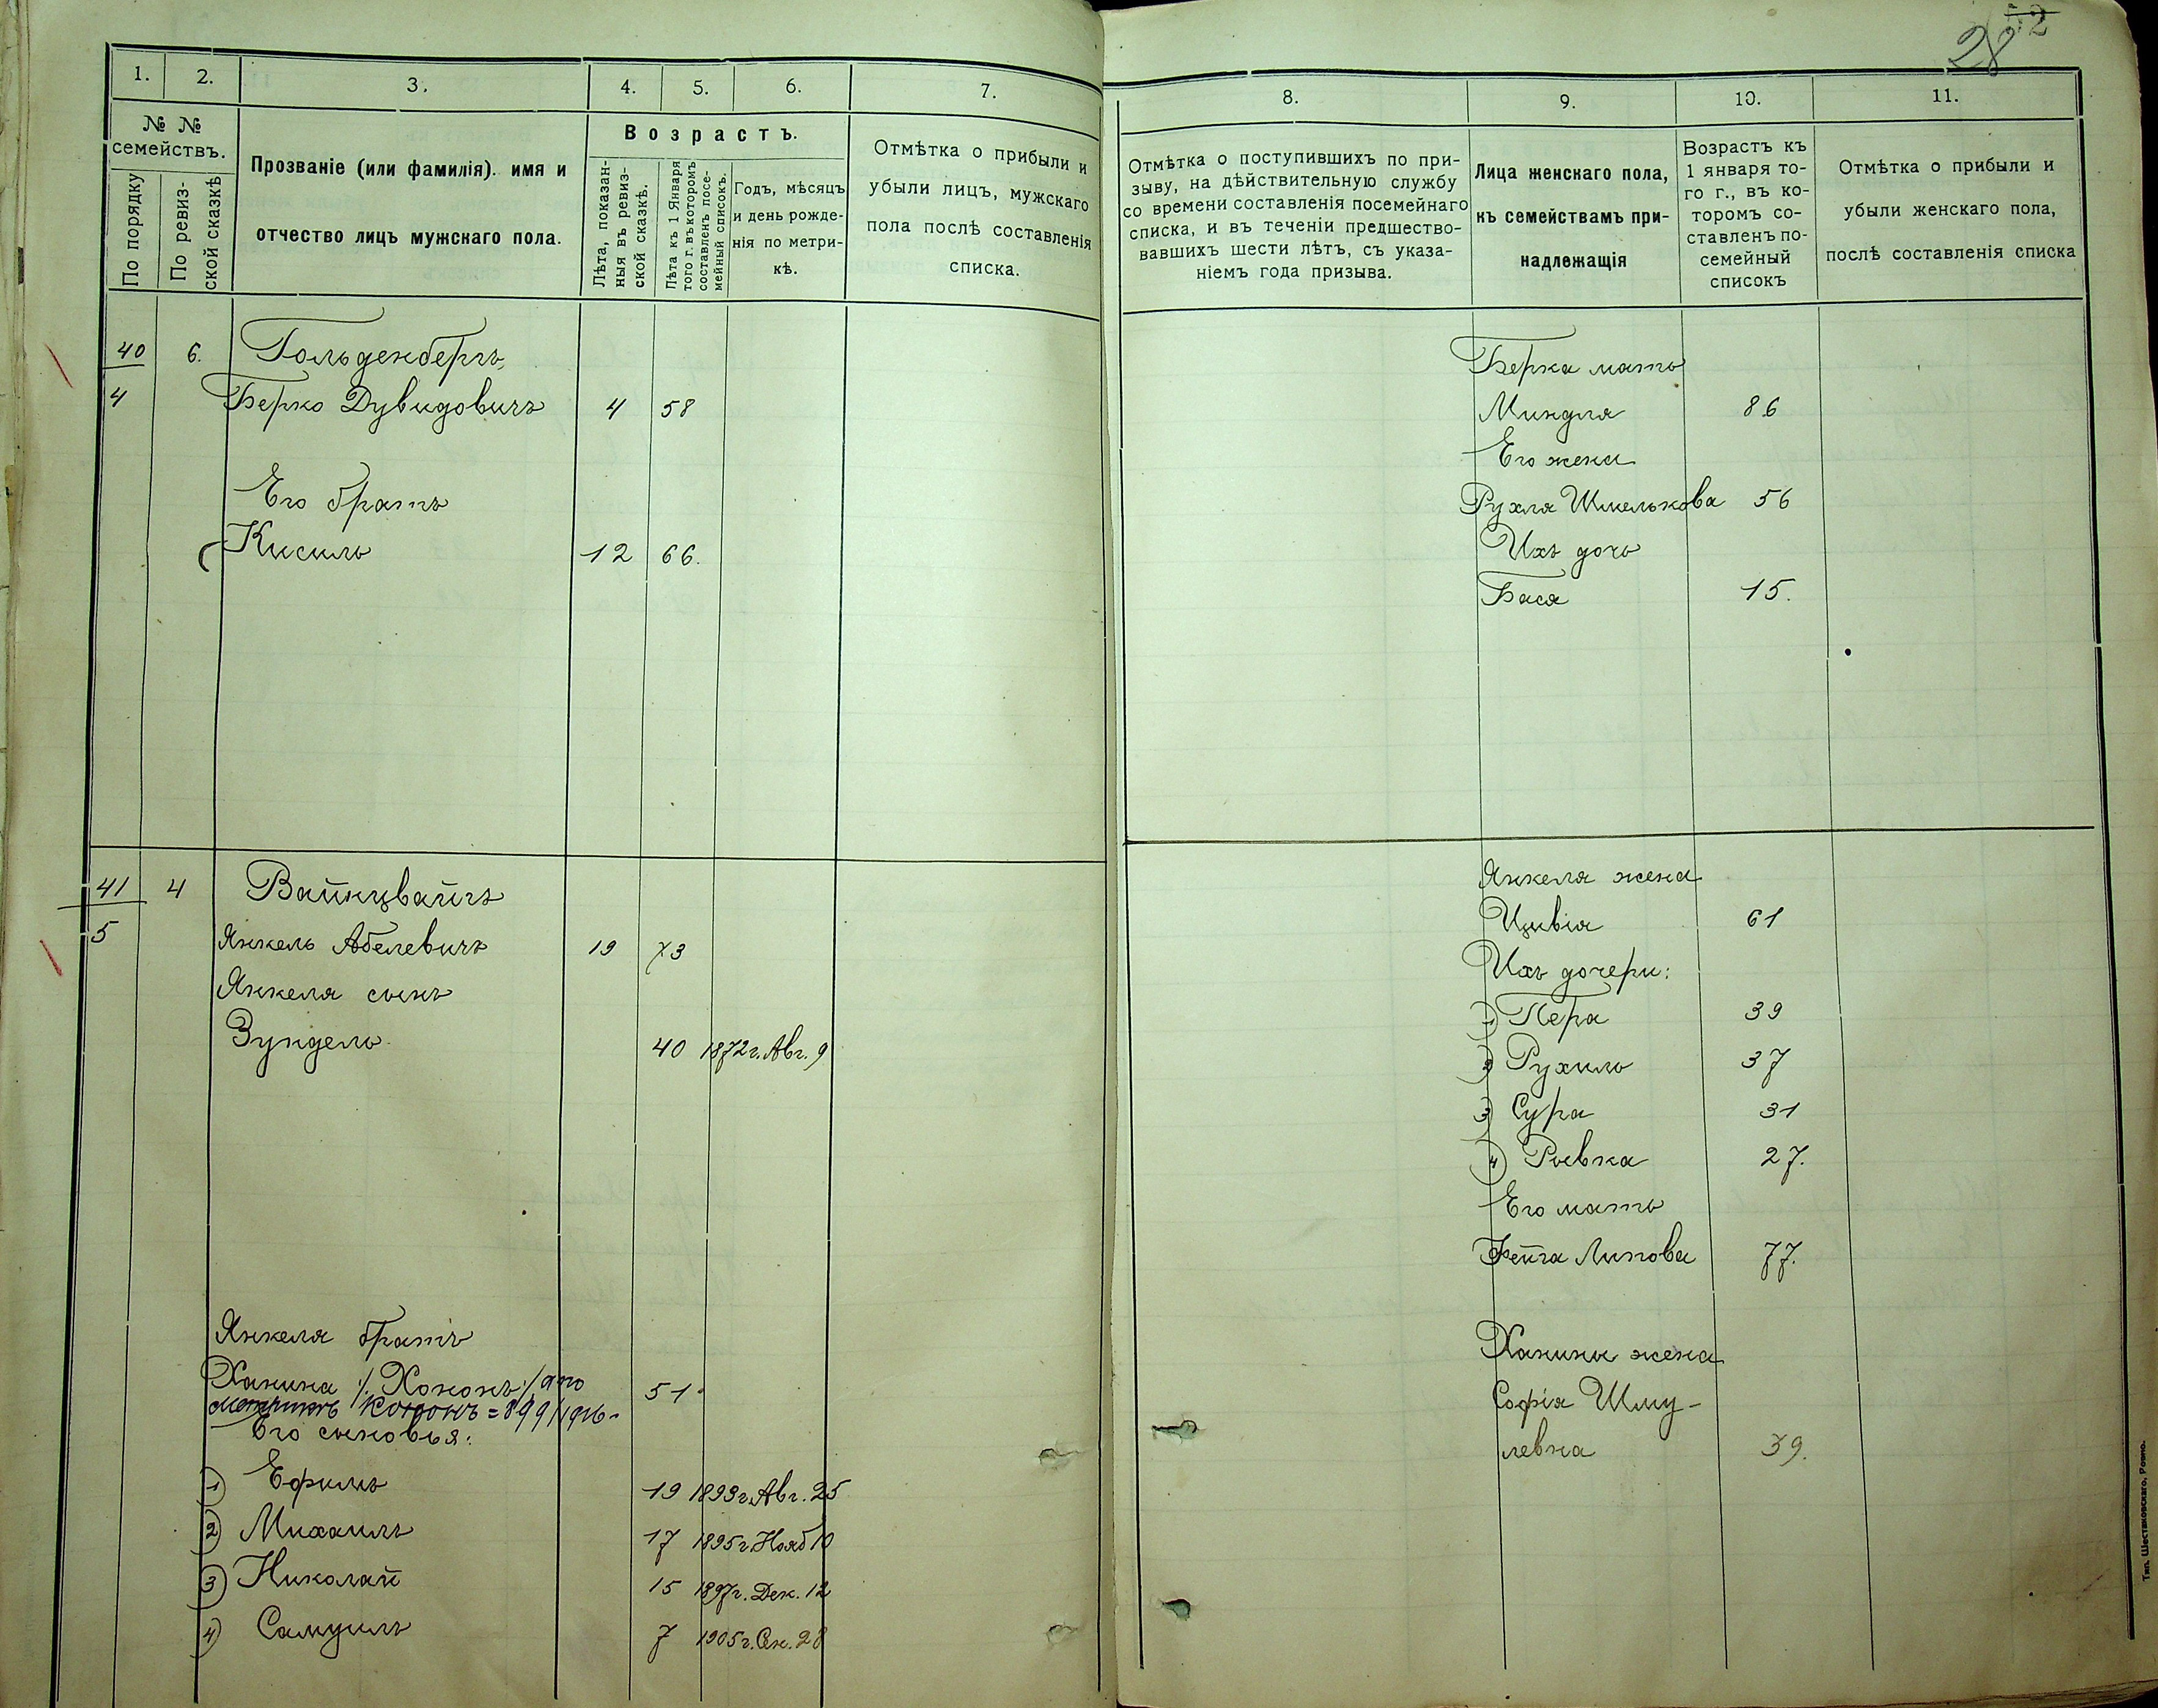 52
28
1. 2. 3. 4. 5. 6. 7.
№ №
семействъ.
По порядку
По ревиз-
ской сказкѣ
Прозваніе (или фамилія). имя и
отчество лицъ мужскаго пола.
Возрастъ.
Лѣта, показан-
ныя въ ревиз-
ской сказкѣ.
Лѣта къ 1 Января
того г. въ которомъ
составленъ посе-
мейный списокъ.
Годъ, мѣсяцъ
и день рожде-
нія по метри-
кѣ.
Отмѣтка о прибыли и
убыли лицъ, мужскаго
пола послѣ составленія
списка.
40 6. Гольденбергъ
4 Берко Дувидовичъ 4 58
Его братъ
Кисиль 12 66.
41 4 Вайнцвайгъ
5
Янкель Абелевичъ 19 73
Янкеля сынъ
Зундель 40 1872 г. Авг. 9
Янкеля братъ
Ханина /: Хононъ :/ а по
Его сыновья:
1) Ефимъ 19 1893 г. Авг. 25
2) Михаилъ 17 1895 г. Нояб 10
3) Николай 15 1897 г. Дек. 12
4) Самуилъ 7 1905 г. Сен. 28
8. 9. 10. 11.
Отмѣтка о поступившихъ по при-
зыву, на дѣйствительную службу
со времени составленія посемейнаго
списка, и въ теченіи предшество-
вавшихъ шести лѣтъ, съ указа-
ніемъ года призыва.
Лица женскаго пола,
къ семействамъ при-
надлежащія
Возрастъ къ
1 января то-
го г., въ ко-
торомъ со-
ставленъ по-
семейный
списокъ
Отмѣтка о прибыли и
убыли женскаго пола,
послѣ составленія списка
Берка мать
Миндля 86
Его жена
Рухля Шмелькова 56
Ихъ дочь
Бася 15.
Янкеля жена
Цивія 61
Ихъ дочери:
1) Пера 39
2) Рухиль 37
3) Сура 31
4) Ривка 27.
Его мать
Фейга Липова 77.
Ханины жена
Софія Шму-
левна 39.
Тип. Шестаковскаго, Ровно.